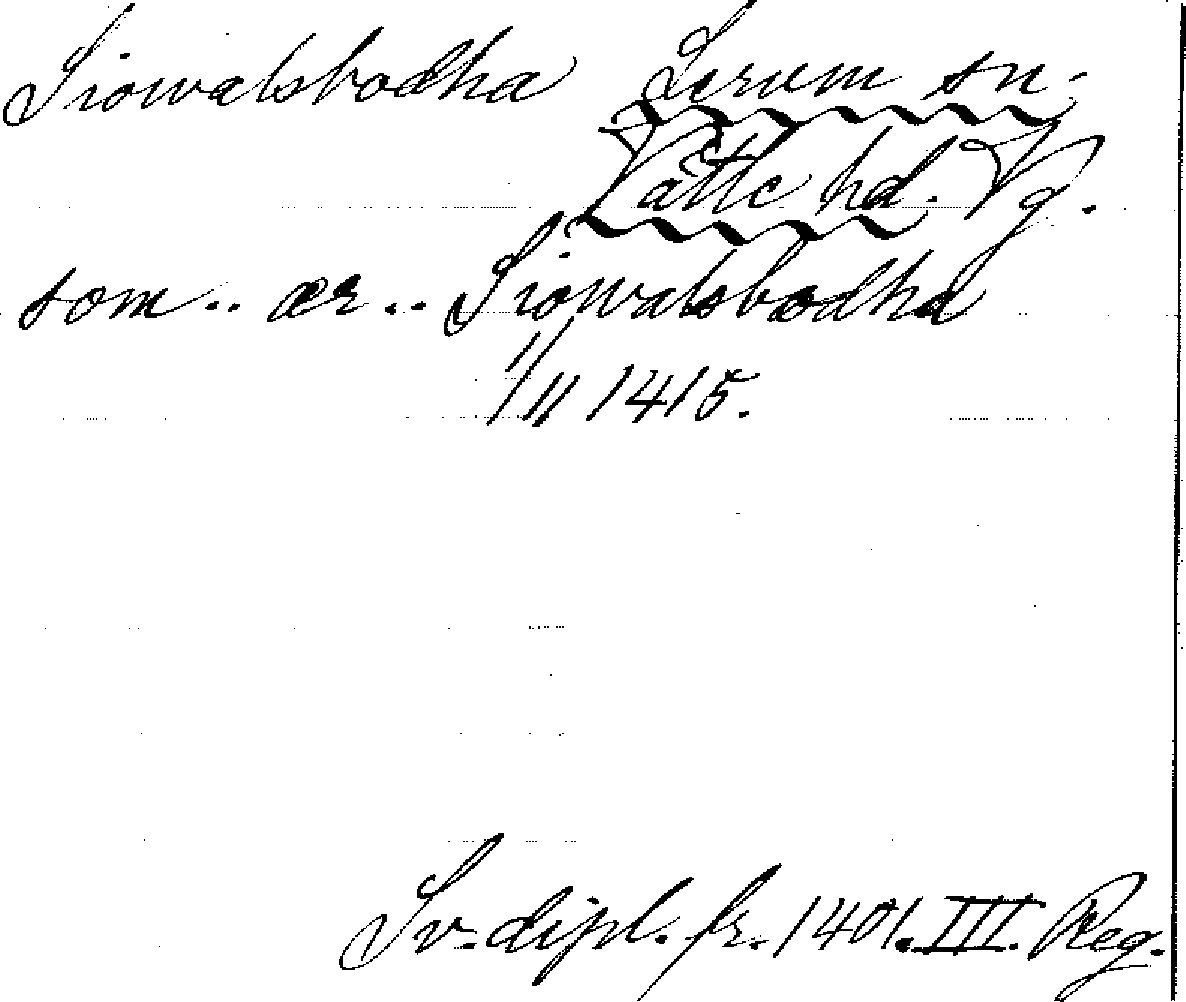 Siowalsbodha Lerum sn.
Vättle hd. Vg.
som .. ær .. Siowalsbodha
1/11 1415.
Sv. dipl. fr. 1401. III. Reg.